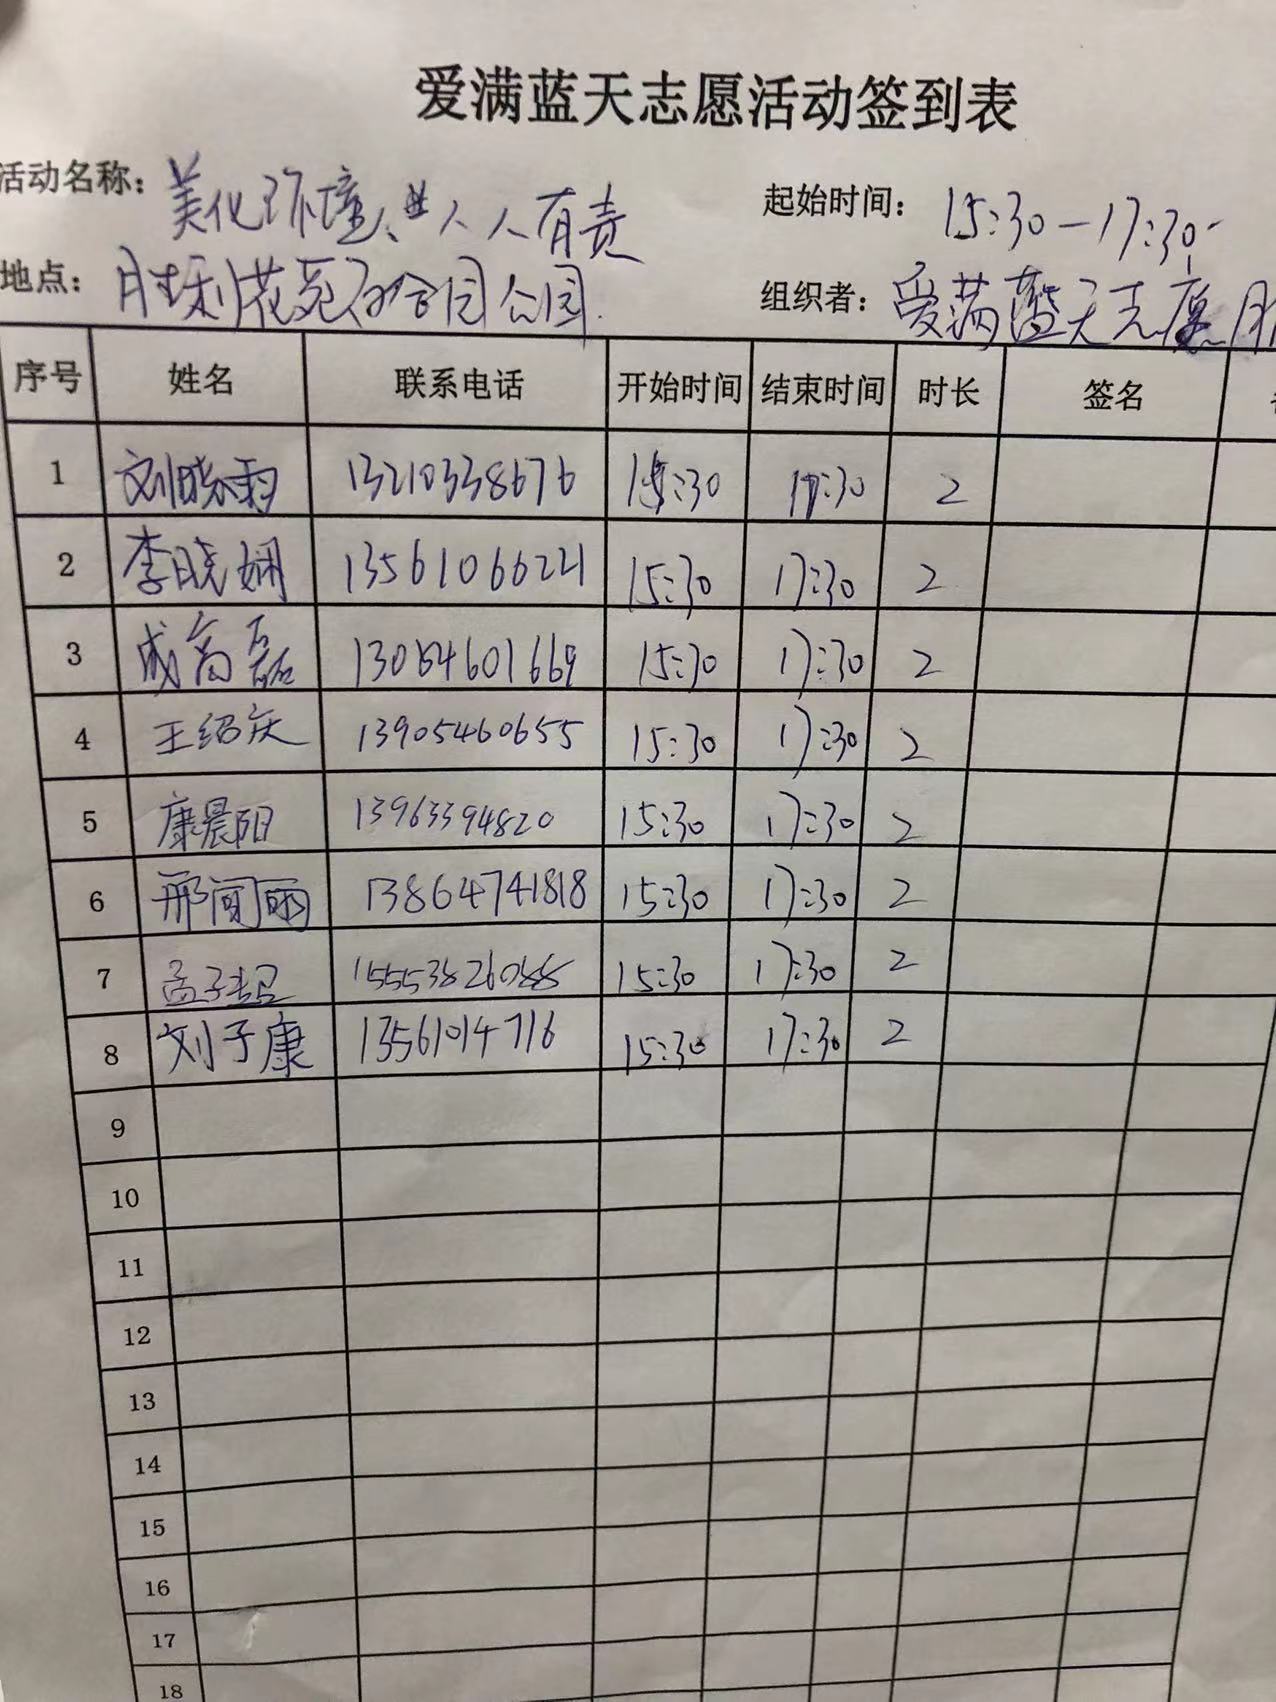 爱满蓝天志愿活动签到表
活动名称：美化环境、人人有责 起始时间：15:30-17:30
地点：胜利花苑 公园 组织者：爱满蓝天志愿
序号 姓名 联系电话 开始时间 结束时间 时长 签名
1 刘晓雨 13210338676 15:30 17:30 2
2 李晓娴 13561066221 15:30 17:30 2
3 成高磊 13054601669 15:30 17:30 2
4 王绍庆 13905460655 15:30 17:30 2
5 康晨阳 13963394820 15:30 17:30 2
6 邢闻雨 13864741818 15:30 17:30 2
7 孟子 15:30 17:30 2
8 刘子康 1356104716 15:30 17:30 2
9
10
11
12
13
14
15
16
17
18